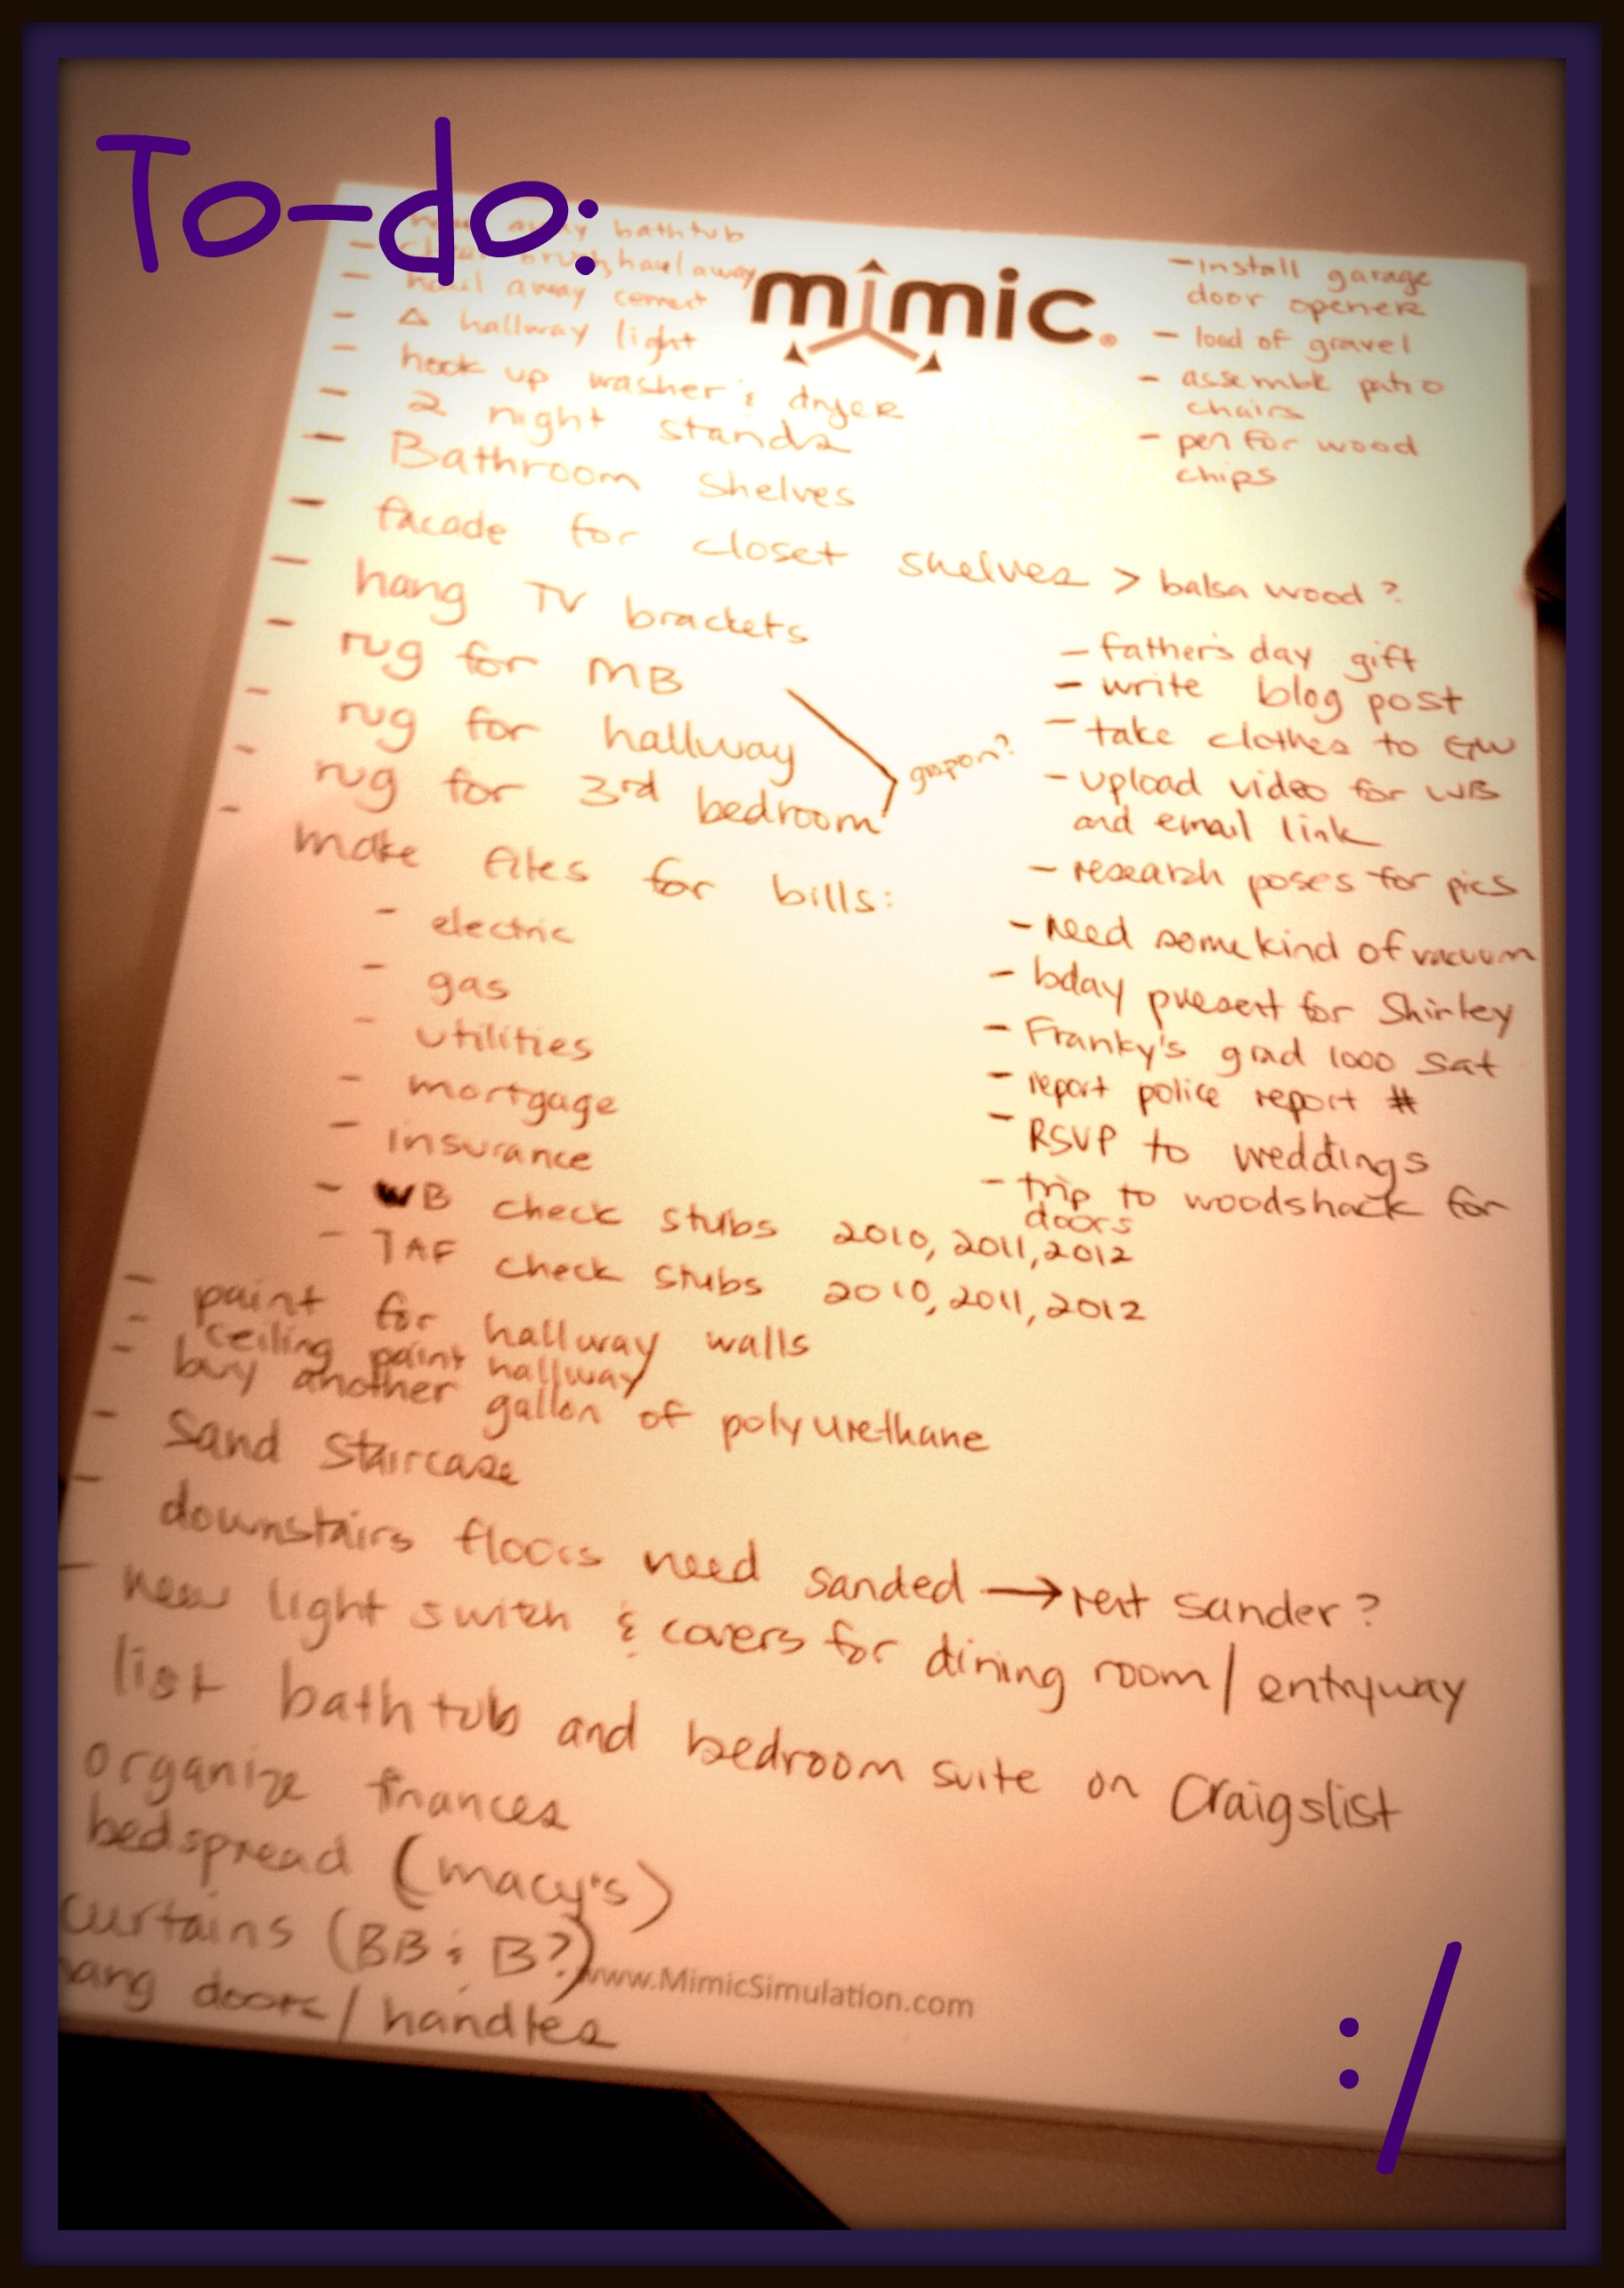 To-do:
away bathtub
- brush, haul away
- haul away cement
- Δ hallway light
- hook up washer & dryer
- 2 night stands
- Bathroom shelves
- facade for closet shelves > balsa wood?
- hang TV brackets
- rug for MB
- rug for hallway
- rug for 3rd bedroom
- make files for bills:
- electric
- gas
- utilities
- mortgage
- insurance
- WB check stubs 2010, 2011, 2012
- TAF check stubs 2010, 2011, 2012
- paint for hallway walls
- ceiling paint hallway
- buy another gallon of polyurethane
- sand staircase
- downstairs floors need sanded → rent sander?
- new light switch & covers for dining room / entryway
list bathtub and bedroom suite on Craigslist
organize finances
bedspread (macy's)
curtains (BB & B?)
hang doors / handles
mimic®
- install garage
door opener
- load of gravel
- assemble patio
chairs
- pen for wood
chips
- father's day gift
- write blog post
- take clothes to GW
- upload video for WB
and email link
- research poses for pics
- need some kind of vacuum
- bday present for Shirley
- Franky's grad 1000 sat
- report police report #
- RSVP to weddings
- trip to woodshack for
doors
www.MimicSimulation.com
:/